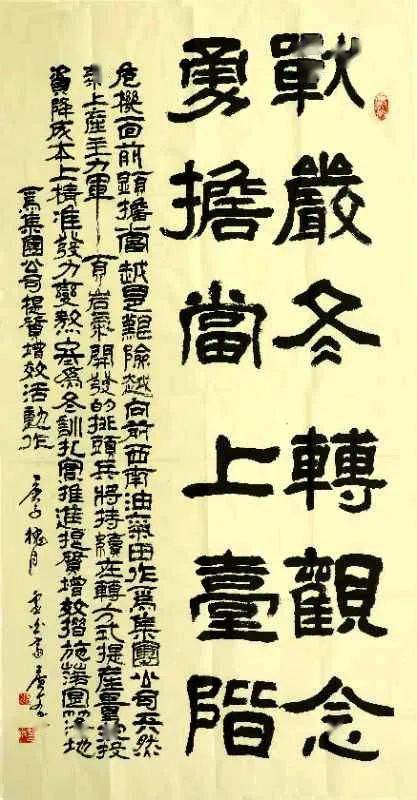 戰嚴冬轉觀念
勇擔當上臺階
危機面前顯擔當越是艱險越向前西南油氣田作為集團公司天然
氣上產主力軍頁岩氣開發的排頭兵將持續在轉方式提產量控投
資降成本上精準發力變熬冬為冬訓扎實推進提質增效措施落實落地
為集團公司提質增效活動作
庚子槐月